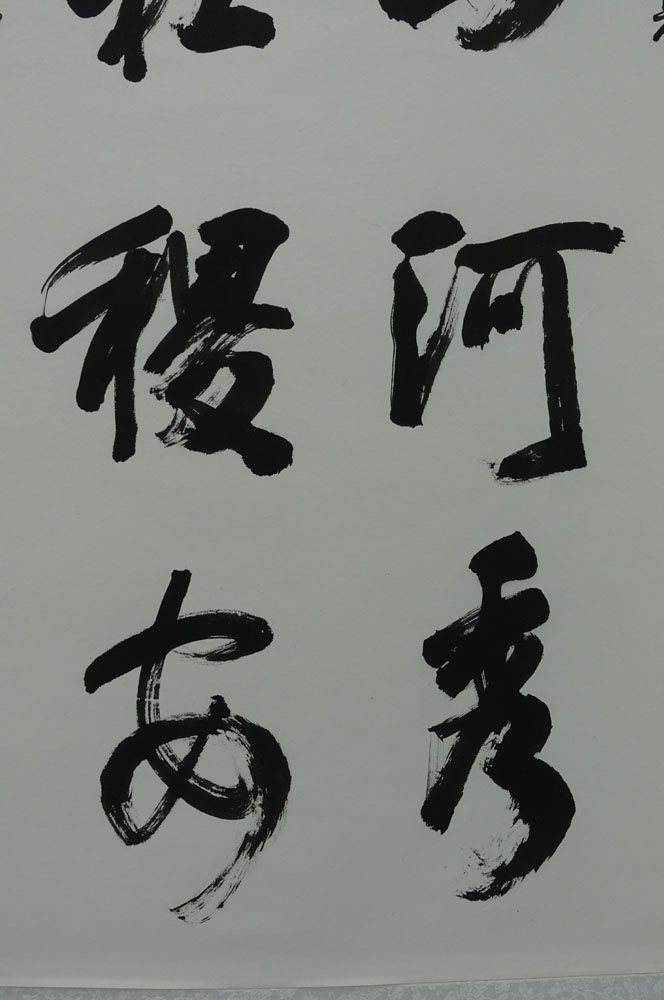 河秀
稷安